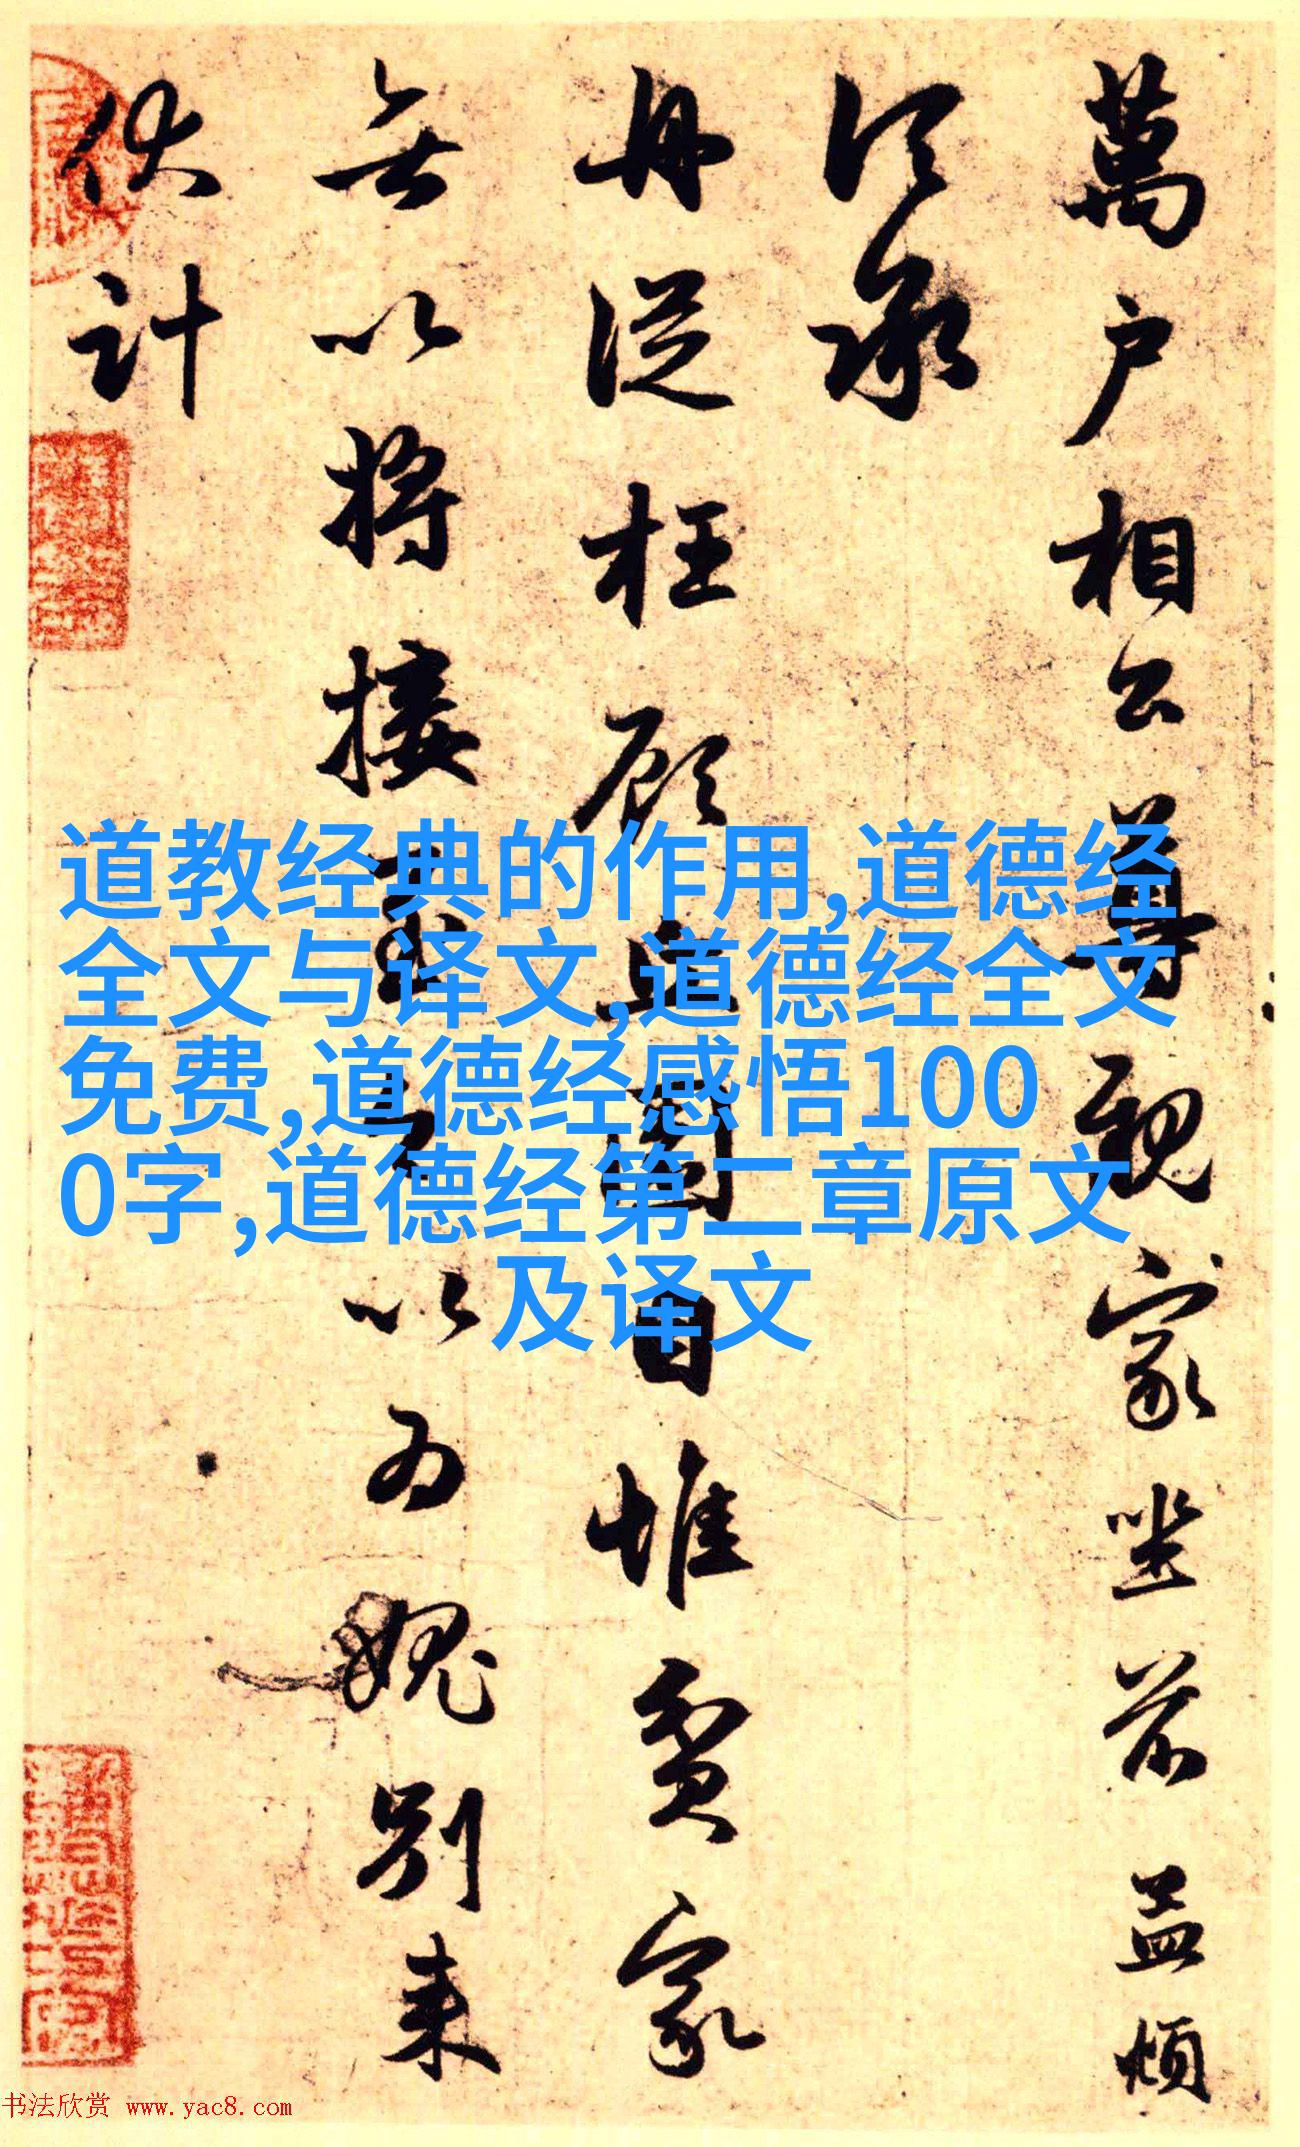 萬户相公尊親家坐前益煩
再從枉顧
自惟貧家
無以將接
以为媿别来
伏計
道教经典的作用,道德经
全文与译文,道德经全文
免费,道德经感悟100
0字,道德经第二章原文
及译文
书法欣赏 www.yac8.com